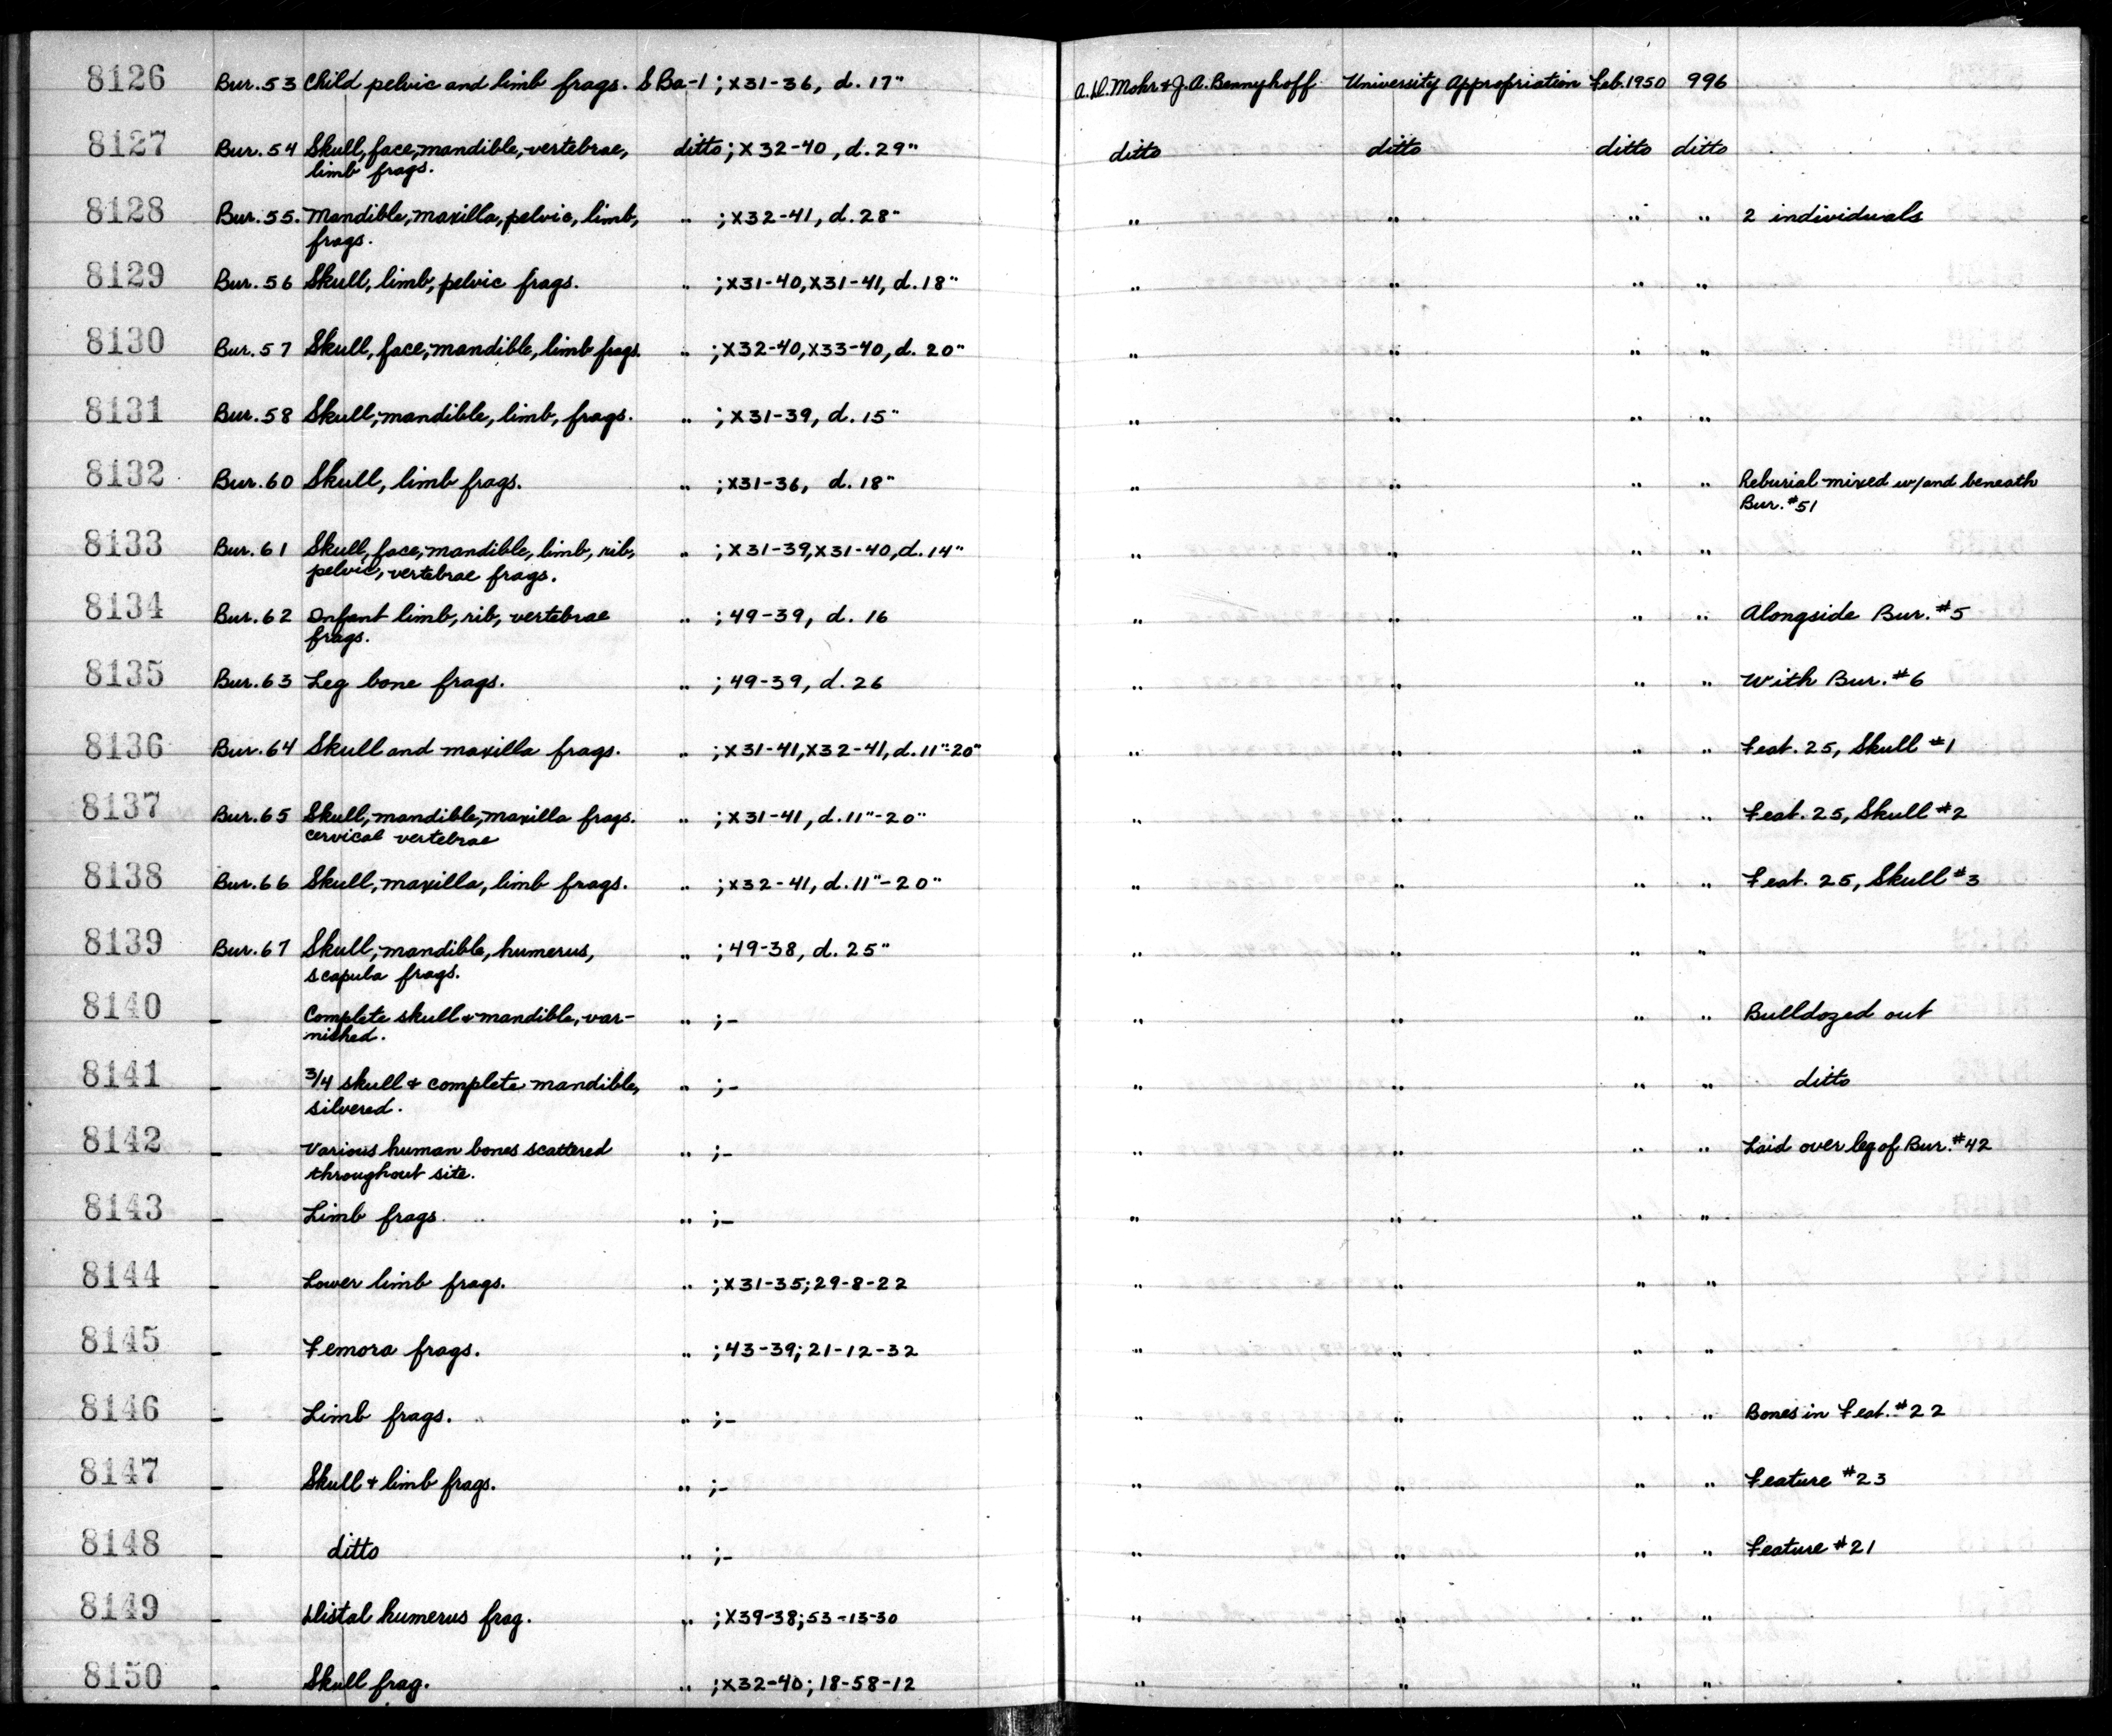 8126 Bur.53 Child pelvic and limb frags. SBa-1 ; X31-36, d. 17" A.D. Mohr & J.A. Bennyhoff University Appropriation Feb.1950 996
8127 Bur.54 Skull, face, mandible, vertebrae, ditto ; X32-40, d. 29" ditto ditto ditto ditto
limb frags.
8128 Bur.55. Mandible, maxilla, pelvic, limb, " ; X32-41, d. 28" " " " " 2 individuals
frags.
8129 Bur.56 Skull, limb, pelvic frags. " ; X31-40, X31-41, d. 18" " " " "
8130 Bur.57 Skull, face, mandible, limb frags. " ; X32-40, X33-40, d. 20" " " " "
8131 Bur.58 Skull, mandible, limb, frags. " ; X31-39, d. 15" " " " "
8132 Bur.60 Skull, limb frags. " ; X31-36, d. 18" " " " " Reburial mixed w/and beneath
Bur. #51
8133 Bur.61 Skull, face, mandible, limb, rib, " ; X31-39, X31-40, d. 14" " " " "
pelvic, vertebrae frags.
8134 Bur.62 Infant limb, rib, vertebrae " ; 49-39, d. 16 " " " " Alongside Bur. #5
frags.
8135 Bur.63 Leg bone frags. " ; 49-39, d. 26 " " " " With Bur. #6
8136 Bur.64 Skull and maxilla frags. " ; X31-41, X32-41, d. 11"-20" " " " " Feat. 25, Skull #1
8137 Bur.65 Skull, mandible, maxilla frags. " ; X31-41, d. 11"-20" " " " " Feat. 25, Skull #2
cervical vertebrae
8138 Bur.66 Skull, maxilla, limb frags. " ; X32-41, d. 11"-20" " " " " Feat. 25, Skull #3
8139 Bur.67 Skull, mandible, humerus, " ; 49-38, d. 25" " " " "
scapula frags.
8140 - Complete skull & mandible, var- " ; - " " " " Bulldozed out
nished.
8141 - 3/4 skull & complete mandible, " ; - " " " " ditto
silvered.
8142 - Various human bones scattered " ; - " " " " Laid over leg of Bur. #42
throughout site.
8143 - Limb frags. " ; - " " " "
8144 - Lower limb frags. " ; X31-35; 29-8-22 " " " "
8145 - Femora frags. " ; 43-39; 21-12-32 " " " "
8146 - Limb frags. " ; - " " " " Bones in Feat. #22
8147 - Skull & limb frags. " ; - " " " " Feature #23
8148 - ditto " ; - " " " " Feature #21
8149 - Distal humerus frag. " ; X39-38; 53-13-30 " " " "
8150 - Skull frag. " ; X32-40; 18-58-12 " " " "